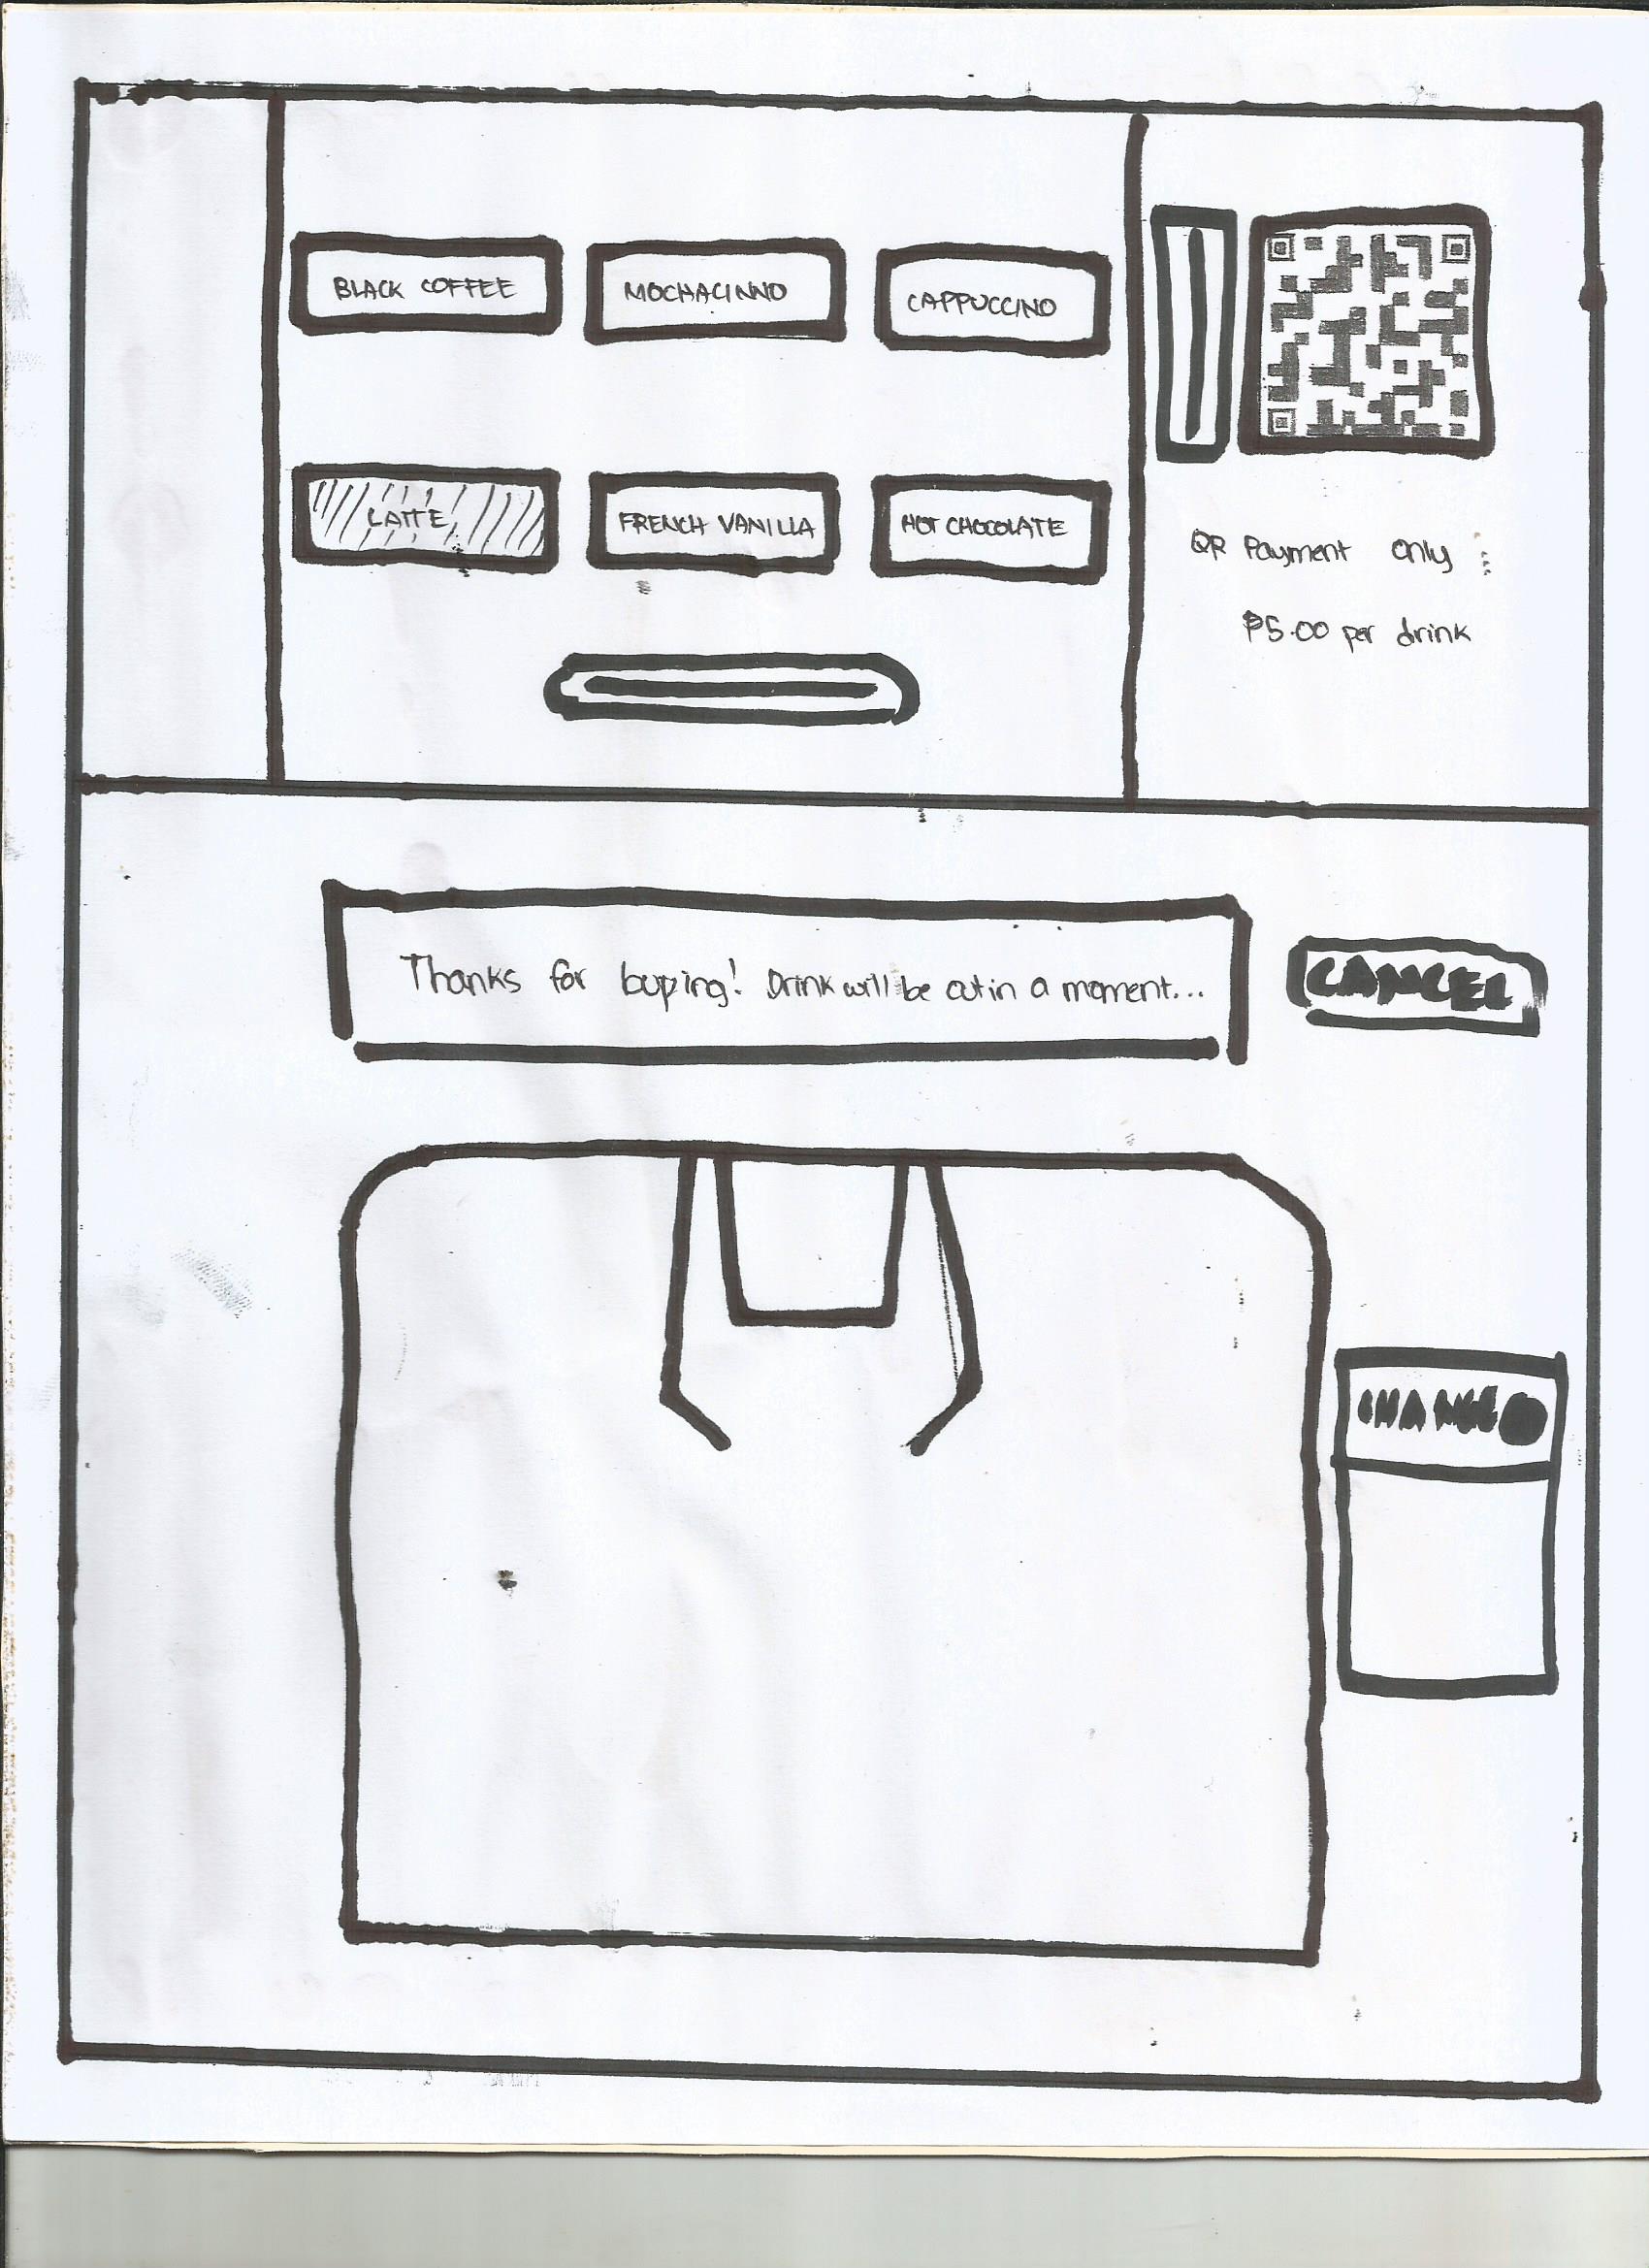 BLACK COFFEE
MOCHACINNO
CAPPUCCINO
LATTE
FRENCH VANILLA
HOT CHOCOLATE
QR Payment only
₱5.00 per drink
Thanks for buying! Drink will be out in a moment...
CANCEL
CHANGE